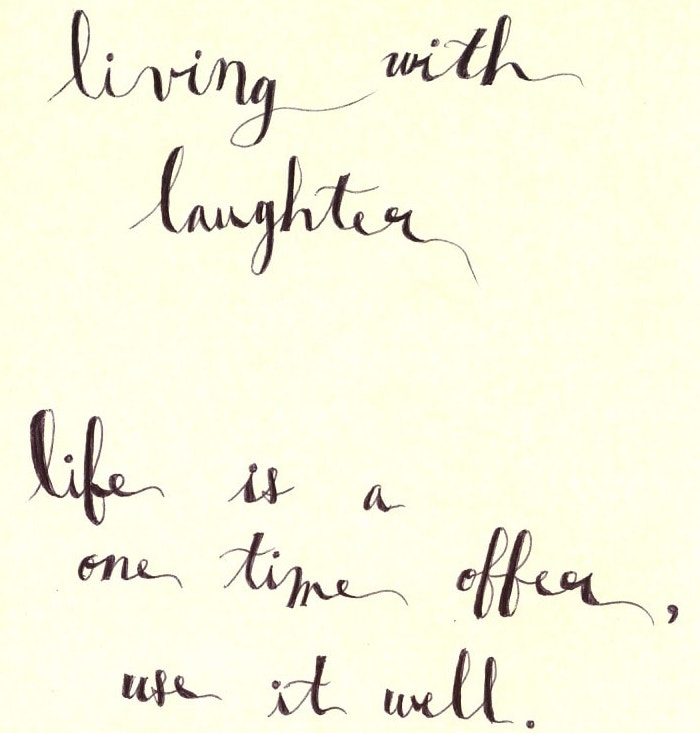 living with
laughter
life is a
one time offer,
use it well.